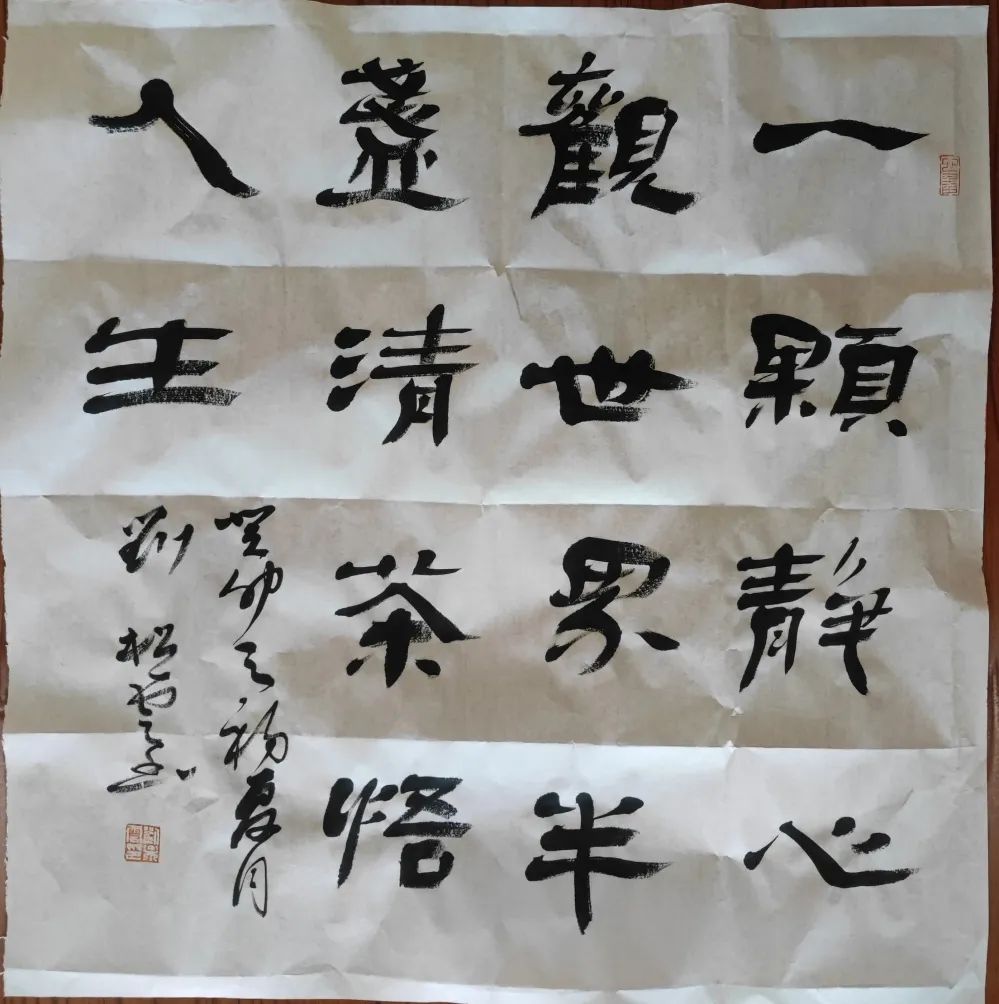 一顆靜心
觀世界半
盞清茶悟
人生
癸卯之初夏月
劉松雲